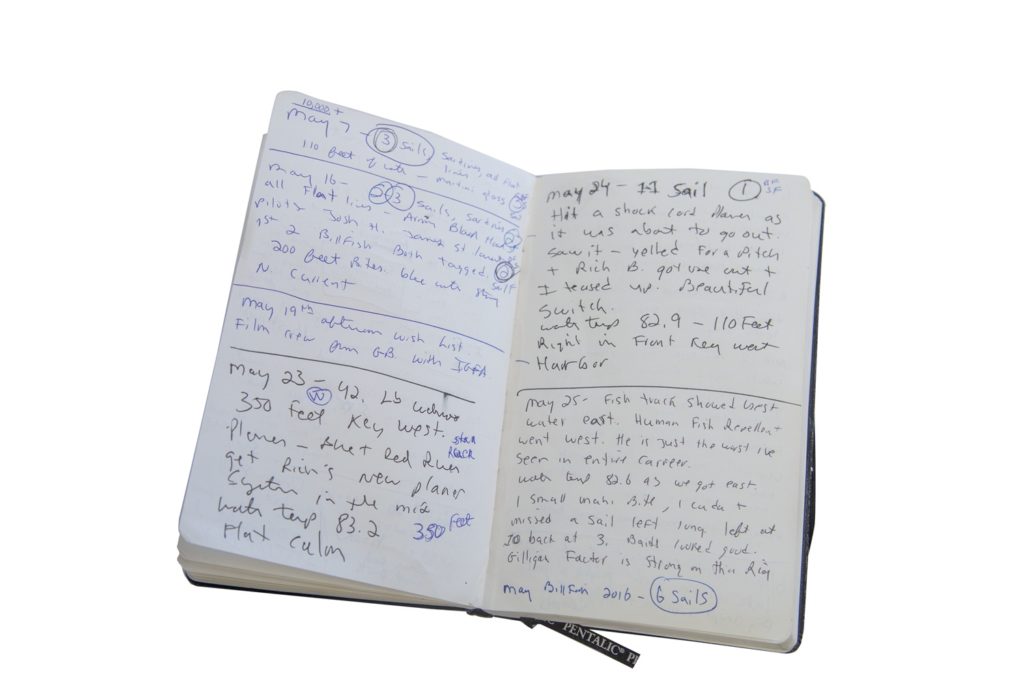 10,000 +
May 7 - 3 Sails
110 feet of water - martini glass
May 16 - 2 3 Sails,
all Flat lines -
pilots Josh H. James
1st 2 BillFish Both tagged. 2
200 feet blue water strong
N. Current
May 19th afternoon wish List.
Film new from G.B. with IGFA
May 23 - 42. Lb wahoo
W
350 Feet Key West. 
Planer - Blue + Red
get Rich's new planer
System in the mix
water temp 83.2 350 Feet
Flat Calm
May 24 - 1-1 Sail 1
Hit a shock cord Planer as
- it was about to go out.
Saw it - yelled For a Pitch
+ Rich B. got one out +
I teased up. Beautiful
Switch.
water temp 82.9 - 110 Feet
Right in Front Key West
- Harbor
May 25 - Fish track showed best
water east. Human Fish Repellent
went west. He is just the worst I've
seen in entire career.
water temp 82.6 as we got east.
1 small mahi Bite, 1 cuda +
missed a Sail left long left at
10 back at 3. Baits looked good.
Gilligan Factor is Strong on this Rig
May BillFish 2016 - 6 Sails
PENTALIC®